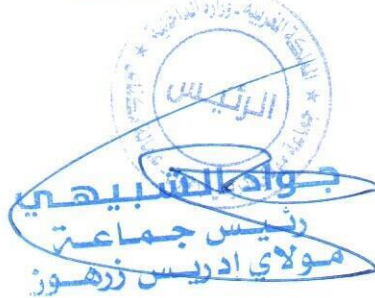 المملكة المغربية - وزارة الداخلية
الرئيس
جواد الشبيهي
رئيس جماعة
مولاي ادريس زرهون